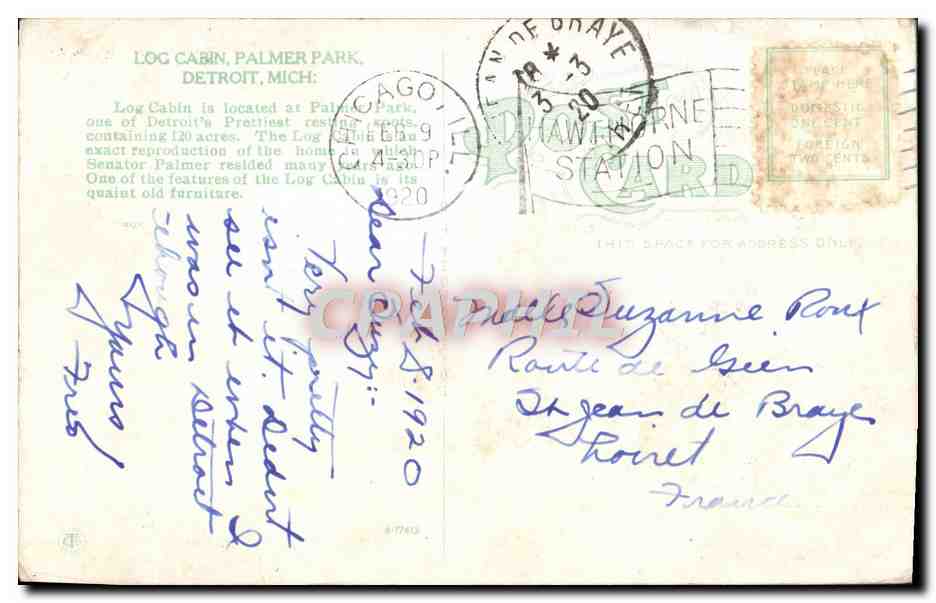 LOG CABIN, PALMER PARK,
DETROIT, MICH:
Log Cabin is located at Palmer Park,
one of Detroit's Prettiest resting spots,
containing 120 acres. The Log Cabin is an
exact reproduction of the home in which
Senator Palmer resided many years ago.
One of the features of the Log Cabin is its
quaint old furniture.
CHICAGO, ILL.
FEB 9
4-30P
1920
HAWTHORNE
STATION
ST JEAN DE BRAYE
18 * 3
3 20
Post
CARD
PLACE
STAMP HERE
DOMESTIC
ONE CENT
FOREIGN
TWO CENTS
THIS SPACE FOR ADDRESS ONLY
Feb 8. 1920
Dear Suzy:-
Very pretty
isn't it. Didn't
see it when I
was in Detroit
though
Yours
Fred
Mdlle Suzanne Roux
Route de Gien
St Jean de Braye
Loiret
France
CPAPHIL
A-77413
CT